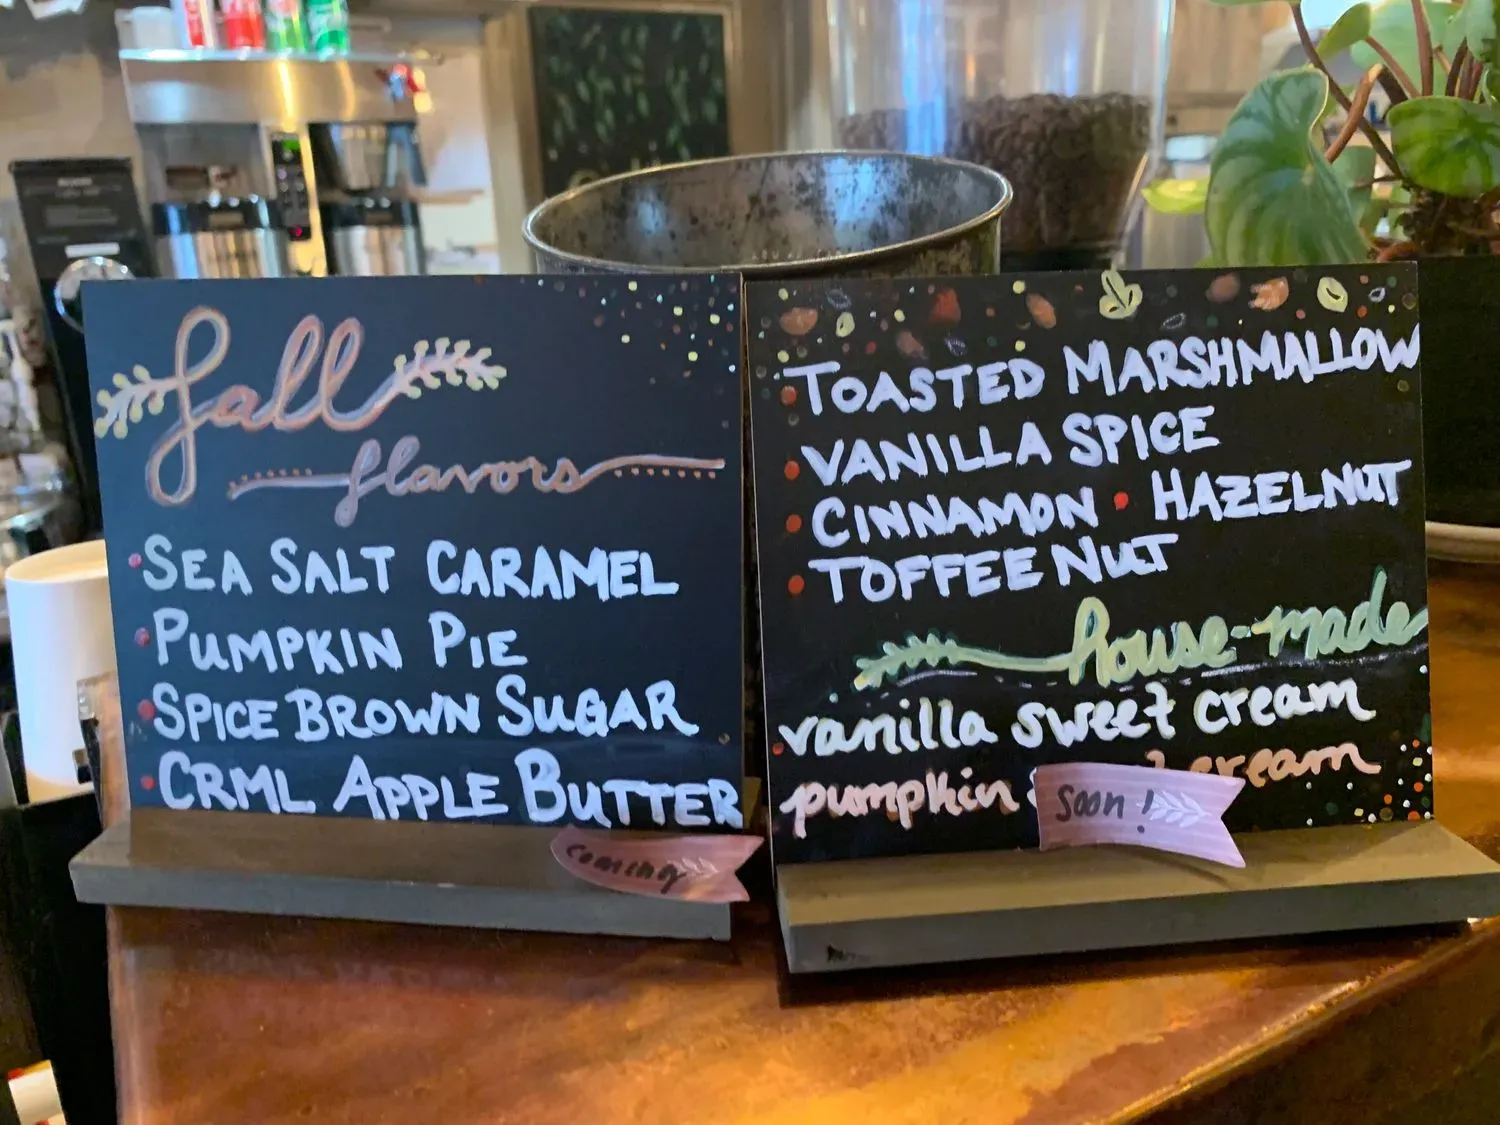 fall
flavors
• SEA SALT CARAMEL
• PUMPKIN PIE
• SPICE BROWN SUGAR
• CRML APPLE BUTTER
coming
• TOASTED MARSHMALLOW
• VANILLA SPICE
• CINNAMON • HAZELNUT
• TOFFEE NUT
house-made
• vanilla sweet cream
pumpkin cream
soon!